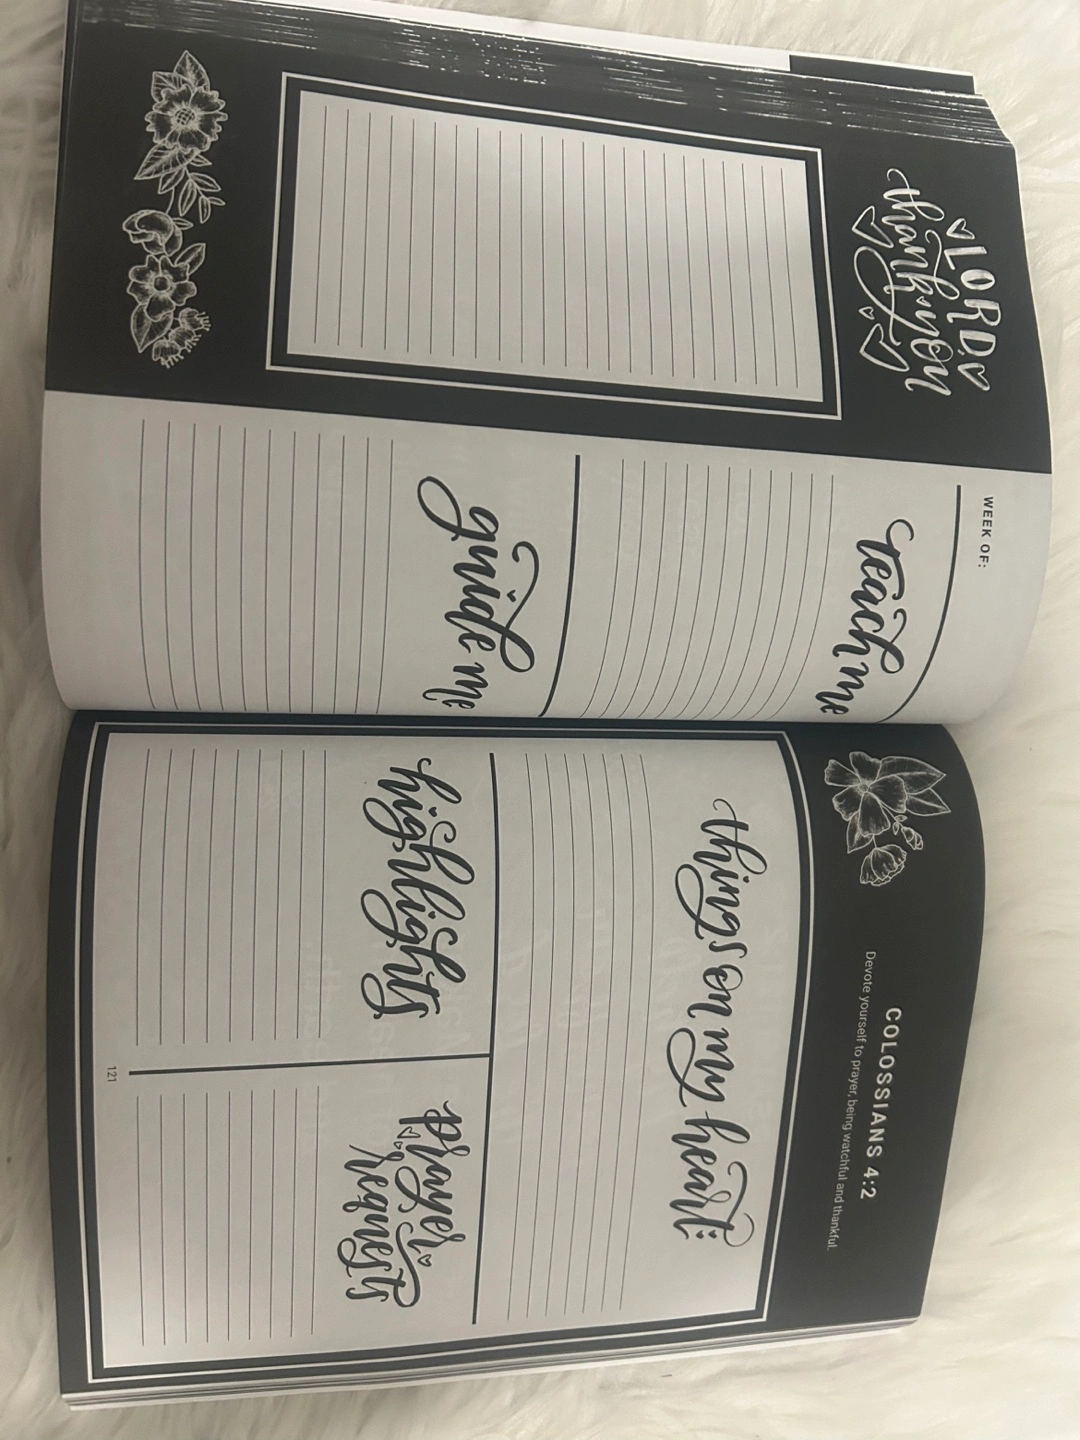 LORD
thank you
WEEK OF:
teach me
guide me
COLOSSIANS 4:2
Devote yourself to prayer, being watchful and thankful.
things on my heart:
highlights
prayer
requests
121